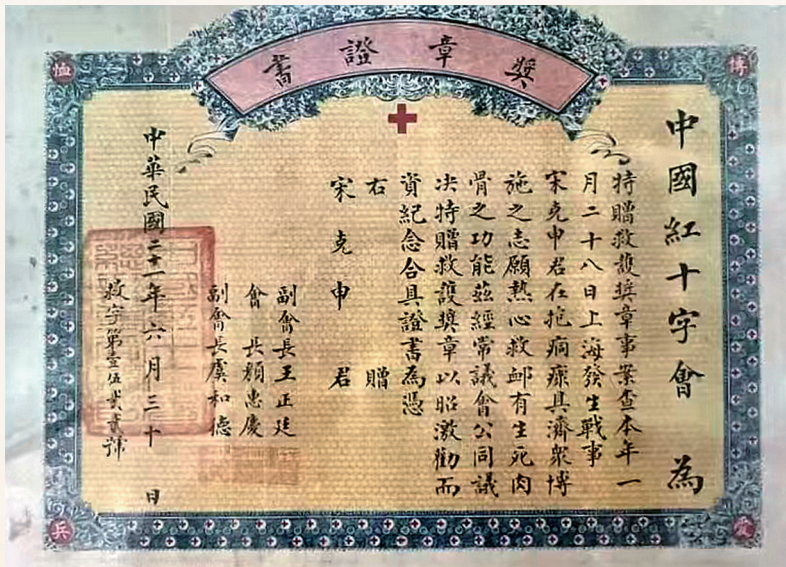 獎章證書
博
愛
恤
兵
中國紅十字會為
特贈救護獎章事案查本年一
月二十八日上海發生戰事
宋克申君在抱痌瘝具濟眾博
施之志願熱心救卹有生死肉
骨之功能茲經常議會公同議
決特贈救護獎章以昭激勸而
資紀念合具證書為憑
右贈
宋克申君
副會長王正廷
會長顏惠慶
副會長虞和德
中華民國二十一年六月三十日
救字第壹伍貳貳號